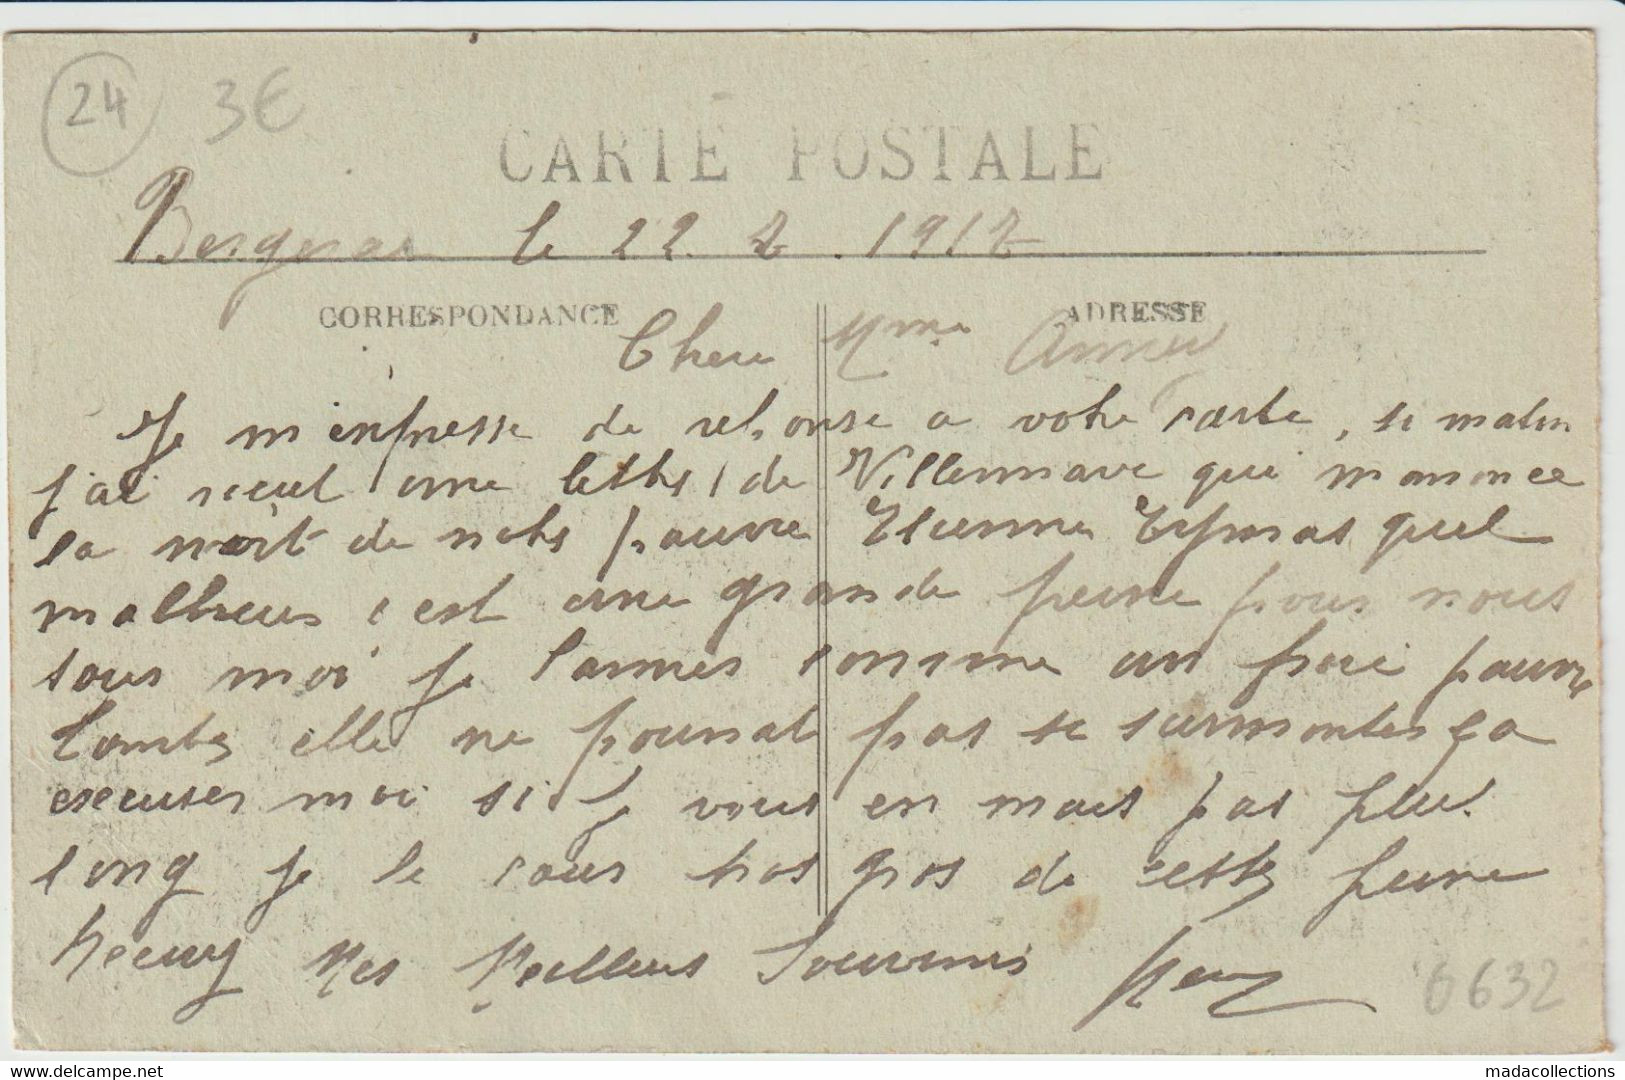 24 3€
CARTE POSTALE
Bergerac le 22. 2. 1917
CORRESPONDANCE
ADRESSE
Chere Mme
Je m'enpresse de reponse a votre carte, se matin
j'ai recut une lettre de Villennave qui m'anonce
la mort de notre pauvre Etienne quel
malheur c'est une grande peine pour nous
tous moi je l'aimes comme un frere pauvre
elle ne pourrat pas se surmonter ça
excuser moi si je vous en mais pas plus
long je le cour trop gros de cette peine
Mes Meilleurs Souvenirs
6632
madacollections